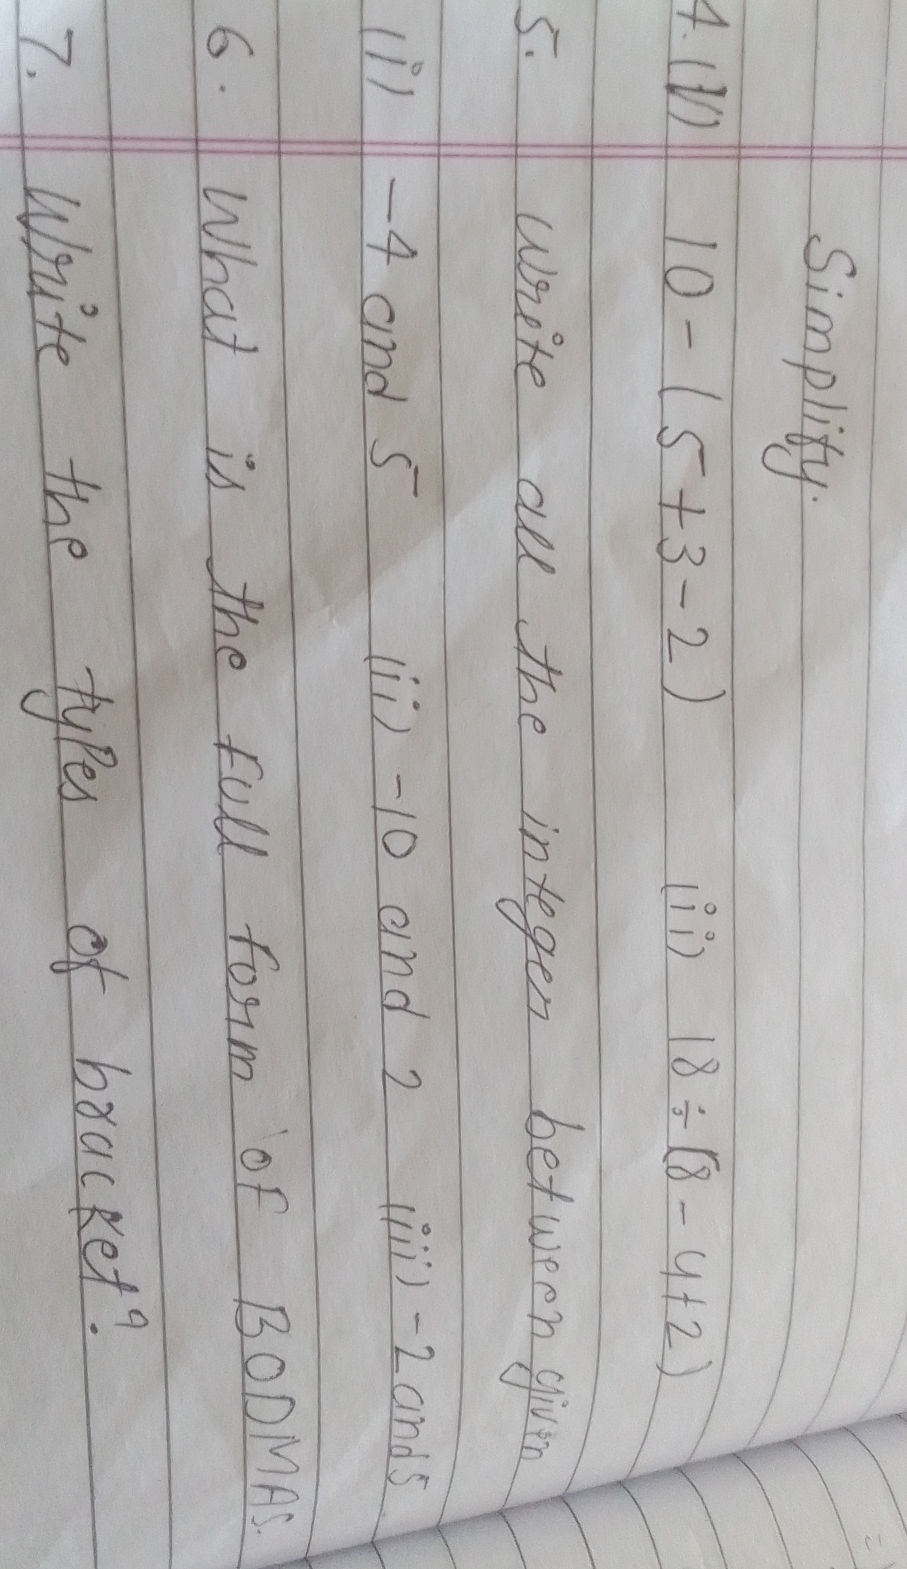 Simplify.
4. (i) 10 - (5+3-2) (ii) 18 ÷ (8 - 4+2)
5. write all the integer between given
(i) -4 and 5 (ii) -10 and 2 (iii) -2 and 5
6. What is the full form of BODMAS.
7. Write the types of bracket?